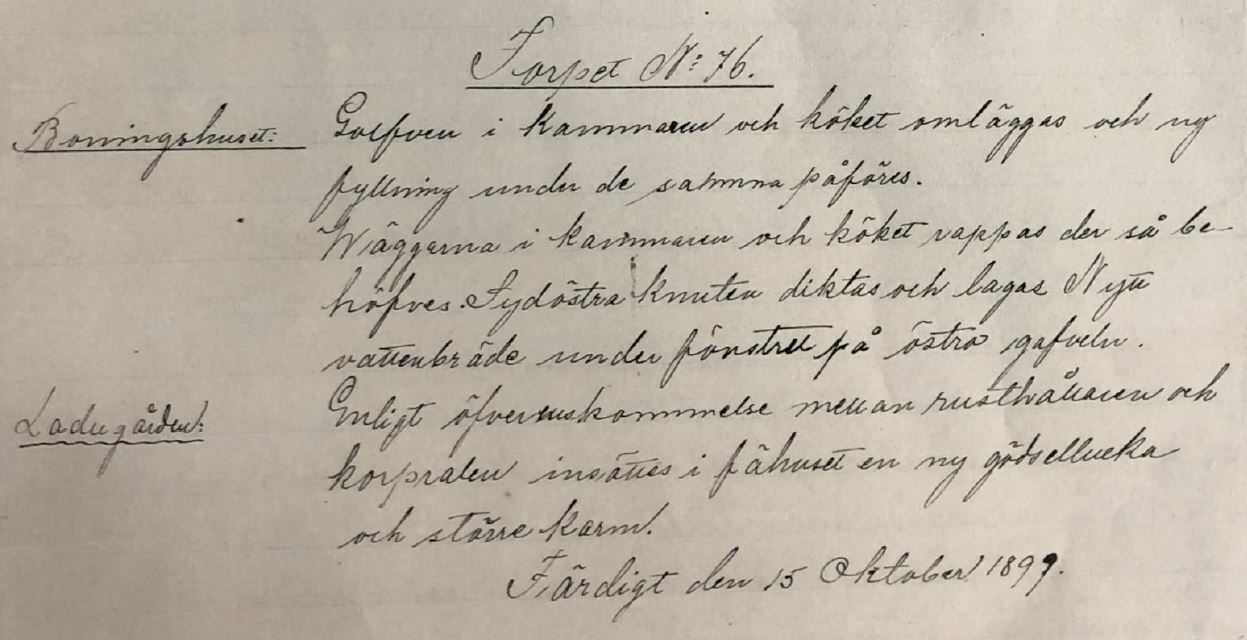 Torpet No: 76.
Boningshuset: Golfven i kammaren och köket omläggas och ny
fyllning under de samma påföres.
Wäggarna i kammaren och köket rappas der så be-
höfves. Sydöstra knuten diktas och lagas Nytt
vattenbräde under fönstret på östra gafveln.
Ladugården: Enligt öfverenskommelse mellan rusthållaren och
korpralen insättes i fähuset en ny gödsellucka
och större karm.
Färdigt den 15 Oktober 1899.